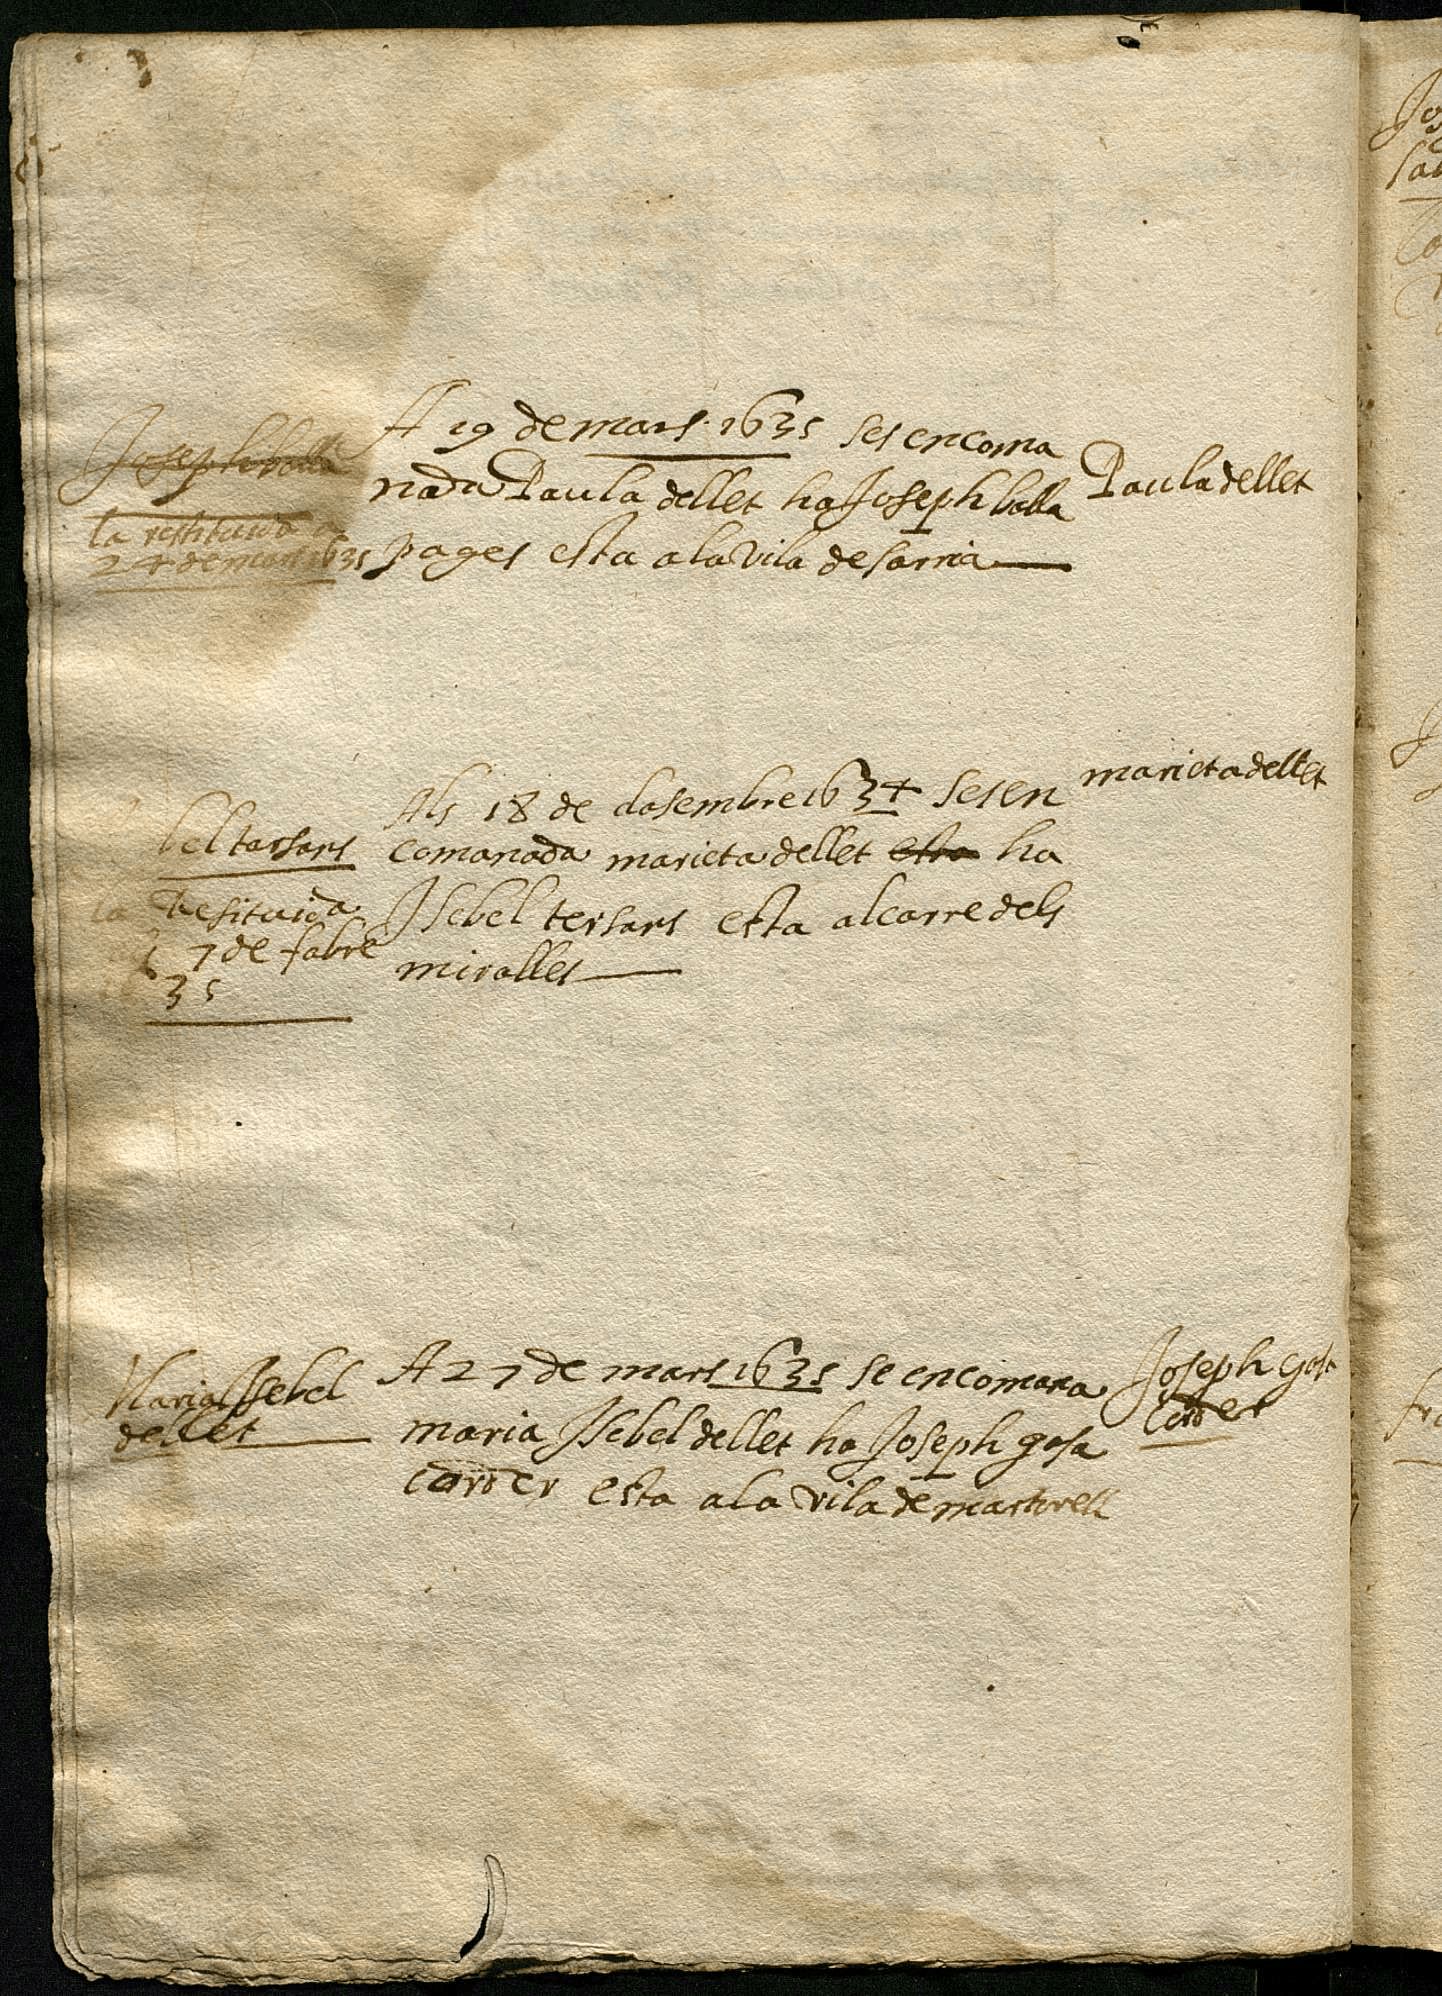 Joseph bolla
la restituida a
24 de mars 1635
A 19 de mars 1635 ses encoma
nada Paula dellet ha Joseph bolla
pages esta a la vila de sarria
Paula dellet
bel tersars
la Resituida
7 de fabre
35
Als 18 de dasembre 1634 ses en
comanada marieta dellet esta ha
Isebel tersars esta al carre dels
miralles
marieta dellet
Maria Isebel
dellet
A 27 de mars 1635 se encomana
maria Isebel dellet ha Joseph gosa
corder esta a la vila de martorell
Joseph gosa
corder